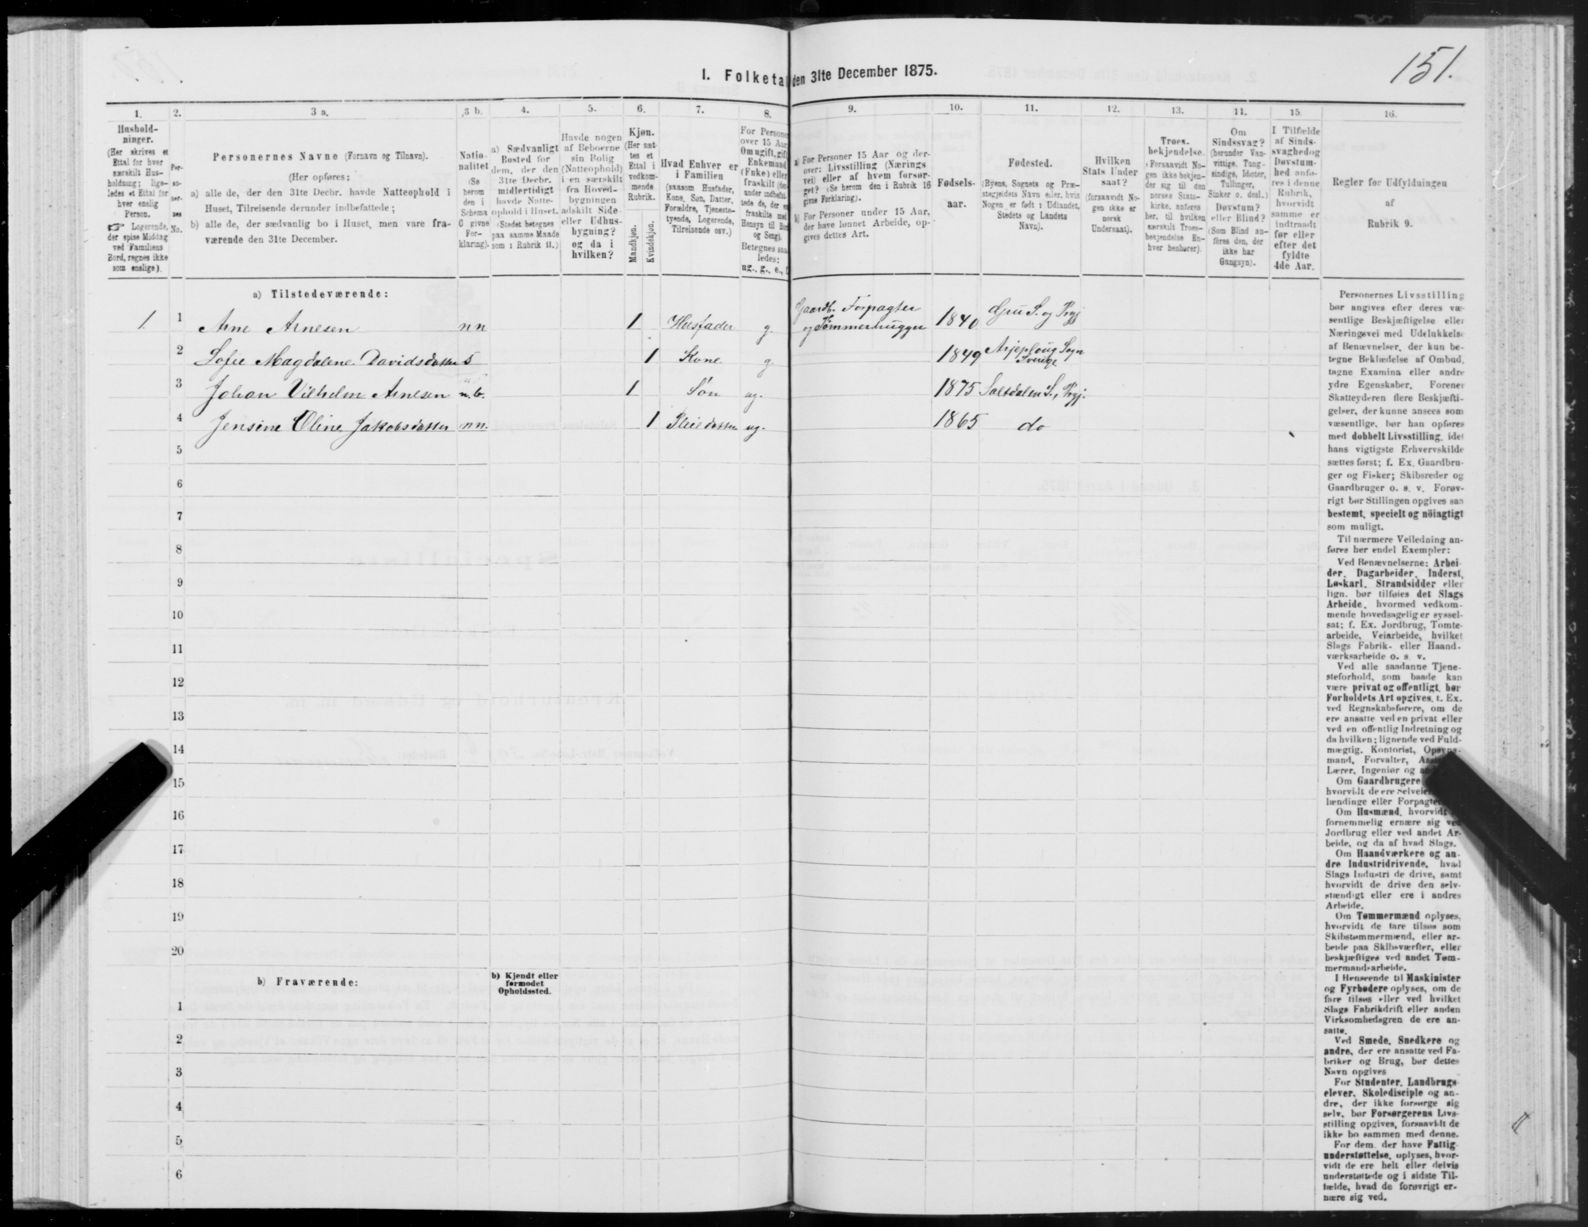 151.
I. Folketal den 31te December 1875.
1.
2.
3 a.
3 b.
4.
5.
6.
7.
8.
9.
10.
11.
12.
13.
14.
15.
16.
Hushold-
ninger.
(Her skrives et
Ettal for hver
særskilt Hus-
holdning; lige-
ledes et Ettal for
hver enslig
Person.
☞ Logerende,
der spise Middag
ved Familiens
Bord, regnes ikke
som enslige).
Per-
so-
ner-
nes
No.
Personernes Navne (Fornavn og Tilnavn).
(Her opføres;
a) alle de, der den 31te Decbr. havde Natteophold i
Huset, Tilreisende derunder indbefattede;
b) alle de, der sædvanlig bo i Huset, men vare fra-
værende den 31te December.
Natio-
nalitet
(Se
herom
den i
Schema
C givne
For-
klaring).
a) Sædvanligt
Bosted for
dem, der den
31te Decbr.
midlertidigt
havde Natte-
ophold i Huset.
(Stedet betegnes
paa samme Maade
som i Rubrik 11.)
Havde nogen
af Beboerne
sin Bolig
(Natteophold)
i en særskilt
fra Hoved-
bygningen
adskilt Side-
eller Udhus-
bygning?
og da i
hvilken?
Kjøn.
(Her sæt-
tes et
Ettal i
vedkom-
mende
Rubrik.
Mandkjøn.
Kvindekjøn.
Hvad Enhver er
i Familien
(saasom Husfader,
Kone, Søn, Datter,
Forældre, Tjeneste-
tyende, Logerende,
Tilreisende osv.)
For Personer
over 15 Aar
Om ugift, gift,
Enkemand
(Enke) eller
fraskilt
Betegnes saa-
ledes:
ug., g., e., f.
a) For Personer 15 Aar og der-
over: Livsstilling (Nærings-
vei) eller af hvem forsør-
get? (Se herom den i Rubrik 16
givne Forklaring).
b) For Personer under 15 Aar,
der have lønnet Arbeide, op-
gives dettes Art.
Fødsels-
aar.
Fødested.
(Byens, Sognets og Præ-
stegjeldets Navn eller, hvis
Nogen er født i Udlandet,
Stedets og Landets
Navn).
Hvilken
Stats Under-
saat?
(forsaavidt No-
gen ikke er
norsk
Undersaat).
Troes-
bekjendelse.
(Forsaavidt No-
gen ikke bekjen-
der sig til den
norske Stats-
kirke, anføres
her, til hvilken
særskilt Troes-
bekjendelse En-
hver henhører).
Om
Sindssvag?
(herunder Van-
vittige, Tung-
sindige, Idioter,
Tullinger,
Sinker o. desl.)
Døvstum?
eller Blind?
(Som Blind an-
føres den, der
ikke har
Gangsyn).
I Tilfælde
af Sinds-
svaghed og
Døvstum-
hed anfø-
res i denne
Rubrik,
hvorvidt
samme er
indtraadt
før eller
efter det
fyldte
4de Aar.
Regler for Udfyldningen
af
Rubrik 9.
a) Tilstedeværende:
1 1 Arne Arnesen nn 1 Husfader g. Gaardb. Forpagter og Tømmerhugger 1840 S. og Prgj
2 Sofie Magdalene Davidsdatter 5 1 Kone g. 1849 Arjeploug Sogn Sverige
3 Johan Vilhelm Arnesen n.b. 1 Søn ug. 1875 Saltdalen S. Prgj.
4 Jensine Oline Jakobsdatter nn. 1 Pleiedatter ug. 1865 do
5
6
7
8
9
10
11
12
13
14
15
16
17
18
19
20
b) Fraværende:
b) Kjendt eller
formodet
Opholdssted.
1
2
3
4
5
6
Personernes Livsstilling
bør angives efter deres væ-
sentlige Beskjæftigelse eller
Næringsvei med Udelukkelse
af Benævnelser, der kun be-
tegne Beklædelse af Ombud,
tagne Examina eller andre
ydre Egenskaber. Forener
Skatteyderen flere Beskjæfti-
gelser, der kunne ansees som
væsentlige, bør han opføres
med dobbelt Livsstilling, idet
hans vigtigste Erhvervskilde
sættes først; f. Ex. Gaardbru-
ger og Fisker; Skibsreder og
Gaardbruger o. s. v. Forøv-
rigt bør Stillingen opgives saa
bestemt, specielt og nöiagtigt
som muligt.
Til nærmere Veiledning an-
føres her endel Exempler:
Ved Benævnelserne: Arbei-
der, Dagarbeider, Inderst,
Løskarl, Strandsidder eller
lign. bør tilføies det Slags
Arbeide, hvormed vedkom-
mende hovedsagelig er syssel-
sat; f. Ex. Jordbrug, Tomte-
arbeide, Veiarbeide, hvilket
Slags Fabrik- eller Haand-
værksarbeide o. s. v.
Ved alle saadanne Tjene-
steforhold, som baade kan
være privat og offentligt, bør
Forholdets Art opgives, f. Ex.
ved Regnskabsførere, om de
ere ansatte ved en privat eller
ved en offentlig Indretning og
da hvilken; lignende ved Fuld-
mægtig, Kontorist, Opsyns-
mand, Forvalter,
Lærer, Ingeniør og
Om Gaardbrugere
hvorvidt de ere Selveiere
lændinge eller Forpagtere
Om Husmænd, hvorvidt
fornemmelig ernære sig ved
Jordbrug eller ved andet Ar-
beide, og da af hvad Slags.
Om Haandværkere og an-
dre Industridrivende, hvad
Slags Industri de drive, samt
hvorvidt de drive den selv-
stændigt eller ere i andres
Arbeide.
Om Tømmermænd oplyses,
hvorvidt de fare tilsøs som
Skibstømmermænd, eller ar-
beide paa Skibsværfter, eller
beskjæftiges ved andet Tøm-
mermandsarbeide.
I Henseende til Maskinister
og Fyrbødere oplyses, om de
fare tilsøs eller ved hvilket
Slags Fabrikdrift eller anden
Virksomhedsgren de ere an-
satte.
Ved Smede, Snedkere og
andre, der ere ansatte ved Fa-
briker og Brug, bør dettes
Navn opgives
For Studenter, Landbrugs-
elever, Skoledisciple og an-
dre, der ikke forsørge sig
selv, bør Forsørgerens Livs-
stilling opgives, forsaavidt de
ikke bo sammen med denne.
For dem, der have Fattig-
understøttelse, oplyses, hvor-
vidt de ere helt eller delvis
understøttede og i sidste Til-
fælde, hvad de forøvrigt er-
nære sig ved.